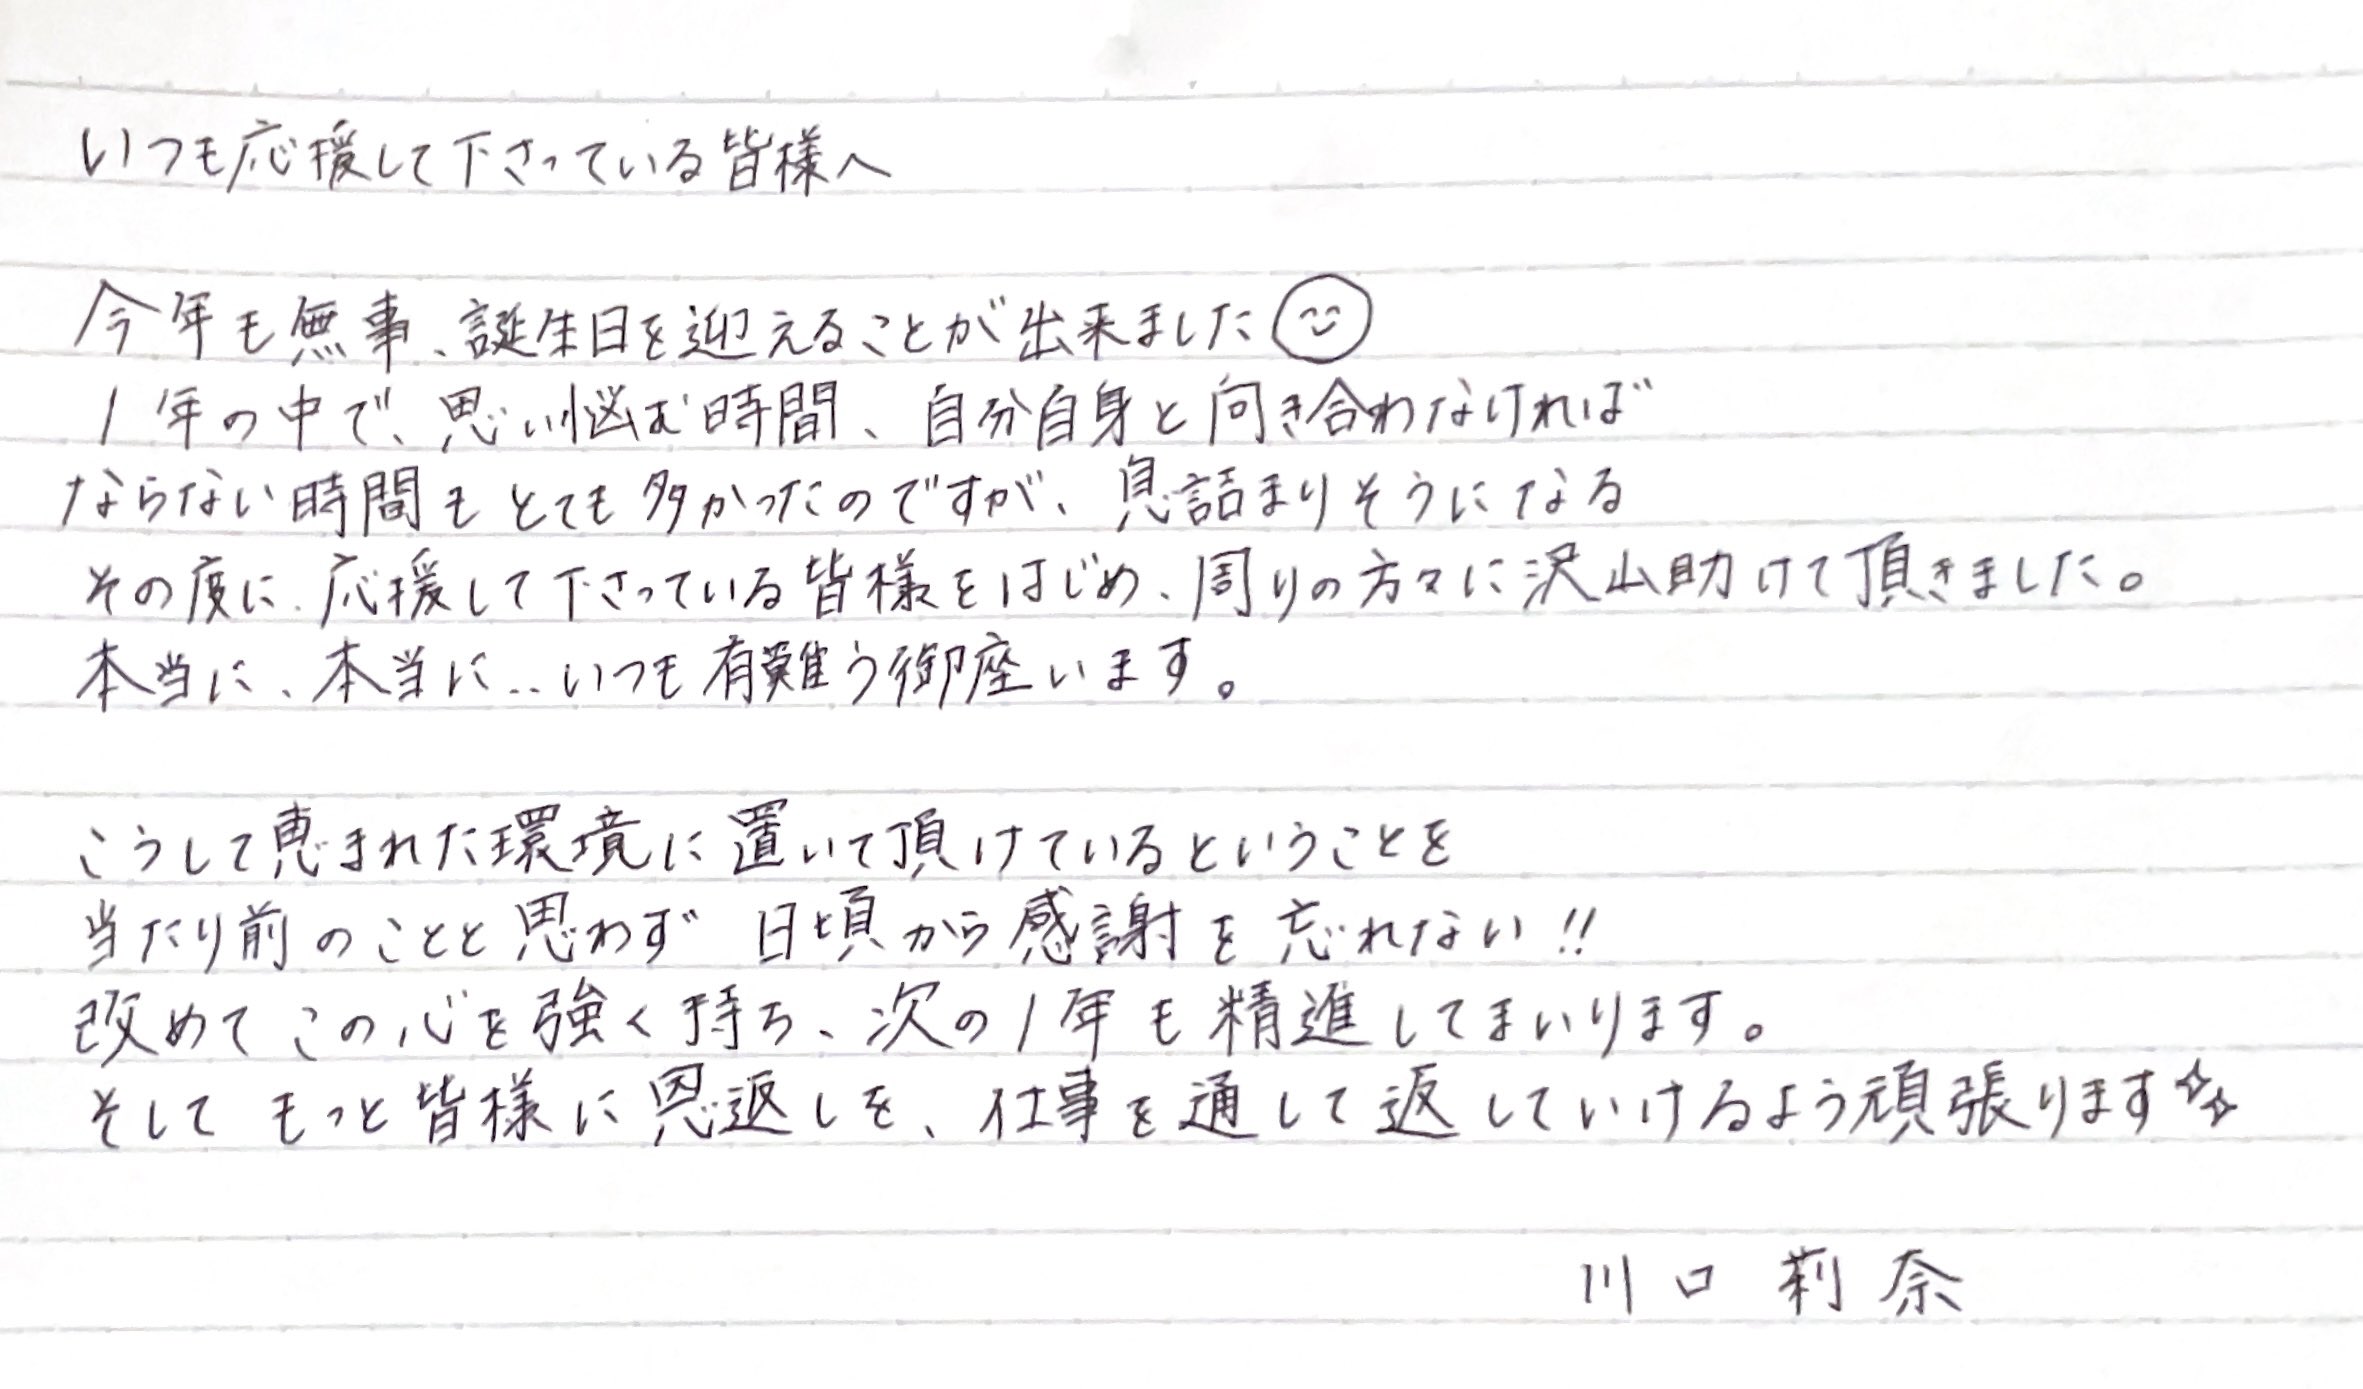 いつも応援して下さっている皆様へ
今年も無事、誕生日を迎えることが出来ました
1年の中で、思い悩む時間、自分自身と向き合わなければ
ならない時間もとても多かったのですが、息詰まりそうになる
その度に、応援して下さっている皆様をはじめ、周りの方々に沢山助けて頂きました。
本当に、本当に…いつも有難う御座います。
こうして恵まれた環境に置いて頂けているということを
当たり前のことと思わず 日頃から感謝を忘れない!!
改めてこの心を強く持ち、次の1年も精進してまいります。
そして もっと皆様に恩返しを、仕事を通して返していけるよう頑張ります☆☆
川口莉奈